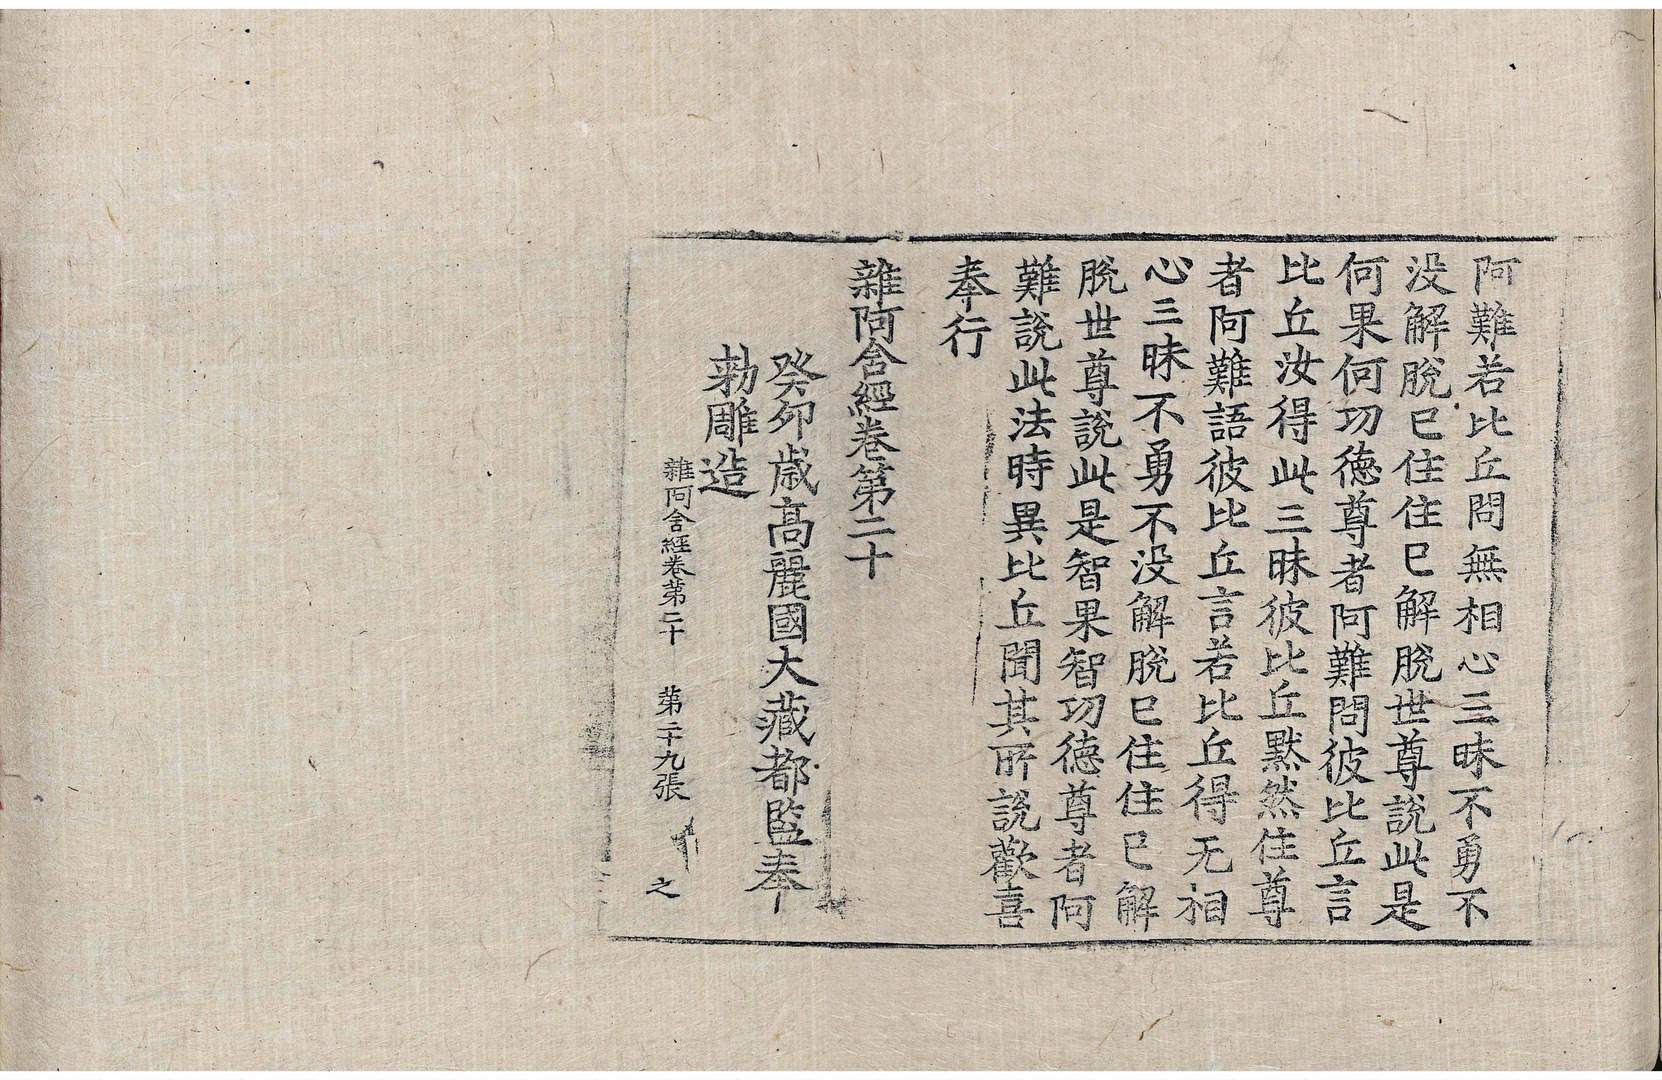 阿難若比丘問無相心三昧不勇不
没解脫已住住已解脫世尊說此是
何果何功德尊者阿難問彼比丘言
比丘汝得此三昧彼比丘默然住尊
者阿難語彼比丘言若比丘得无相
心三昧不勇不没解脫已住住已解
脫世尊說此是智果智功德尊者阿
難說此法時異比丘聞其所說歡喜
奉行
雜阿含經卷第二十
癸卯歲高麗國大藏都監奉
勑雕造
雜阿含經卷第二十 第二十九張 之